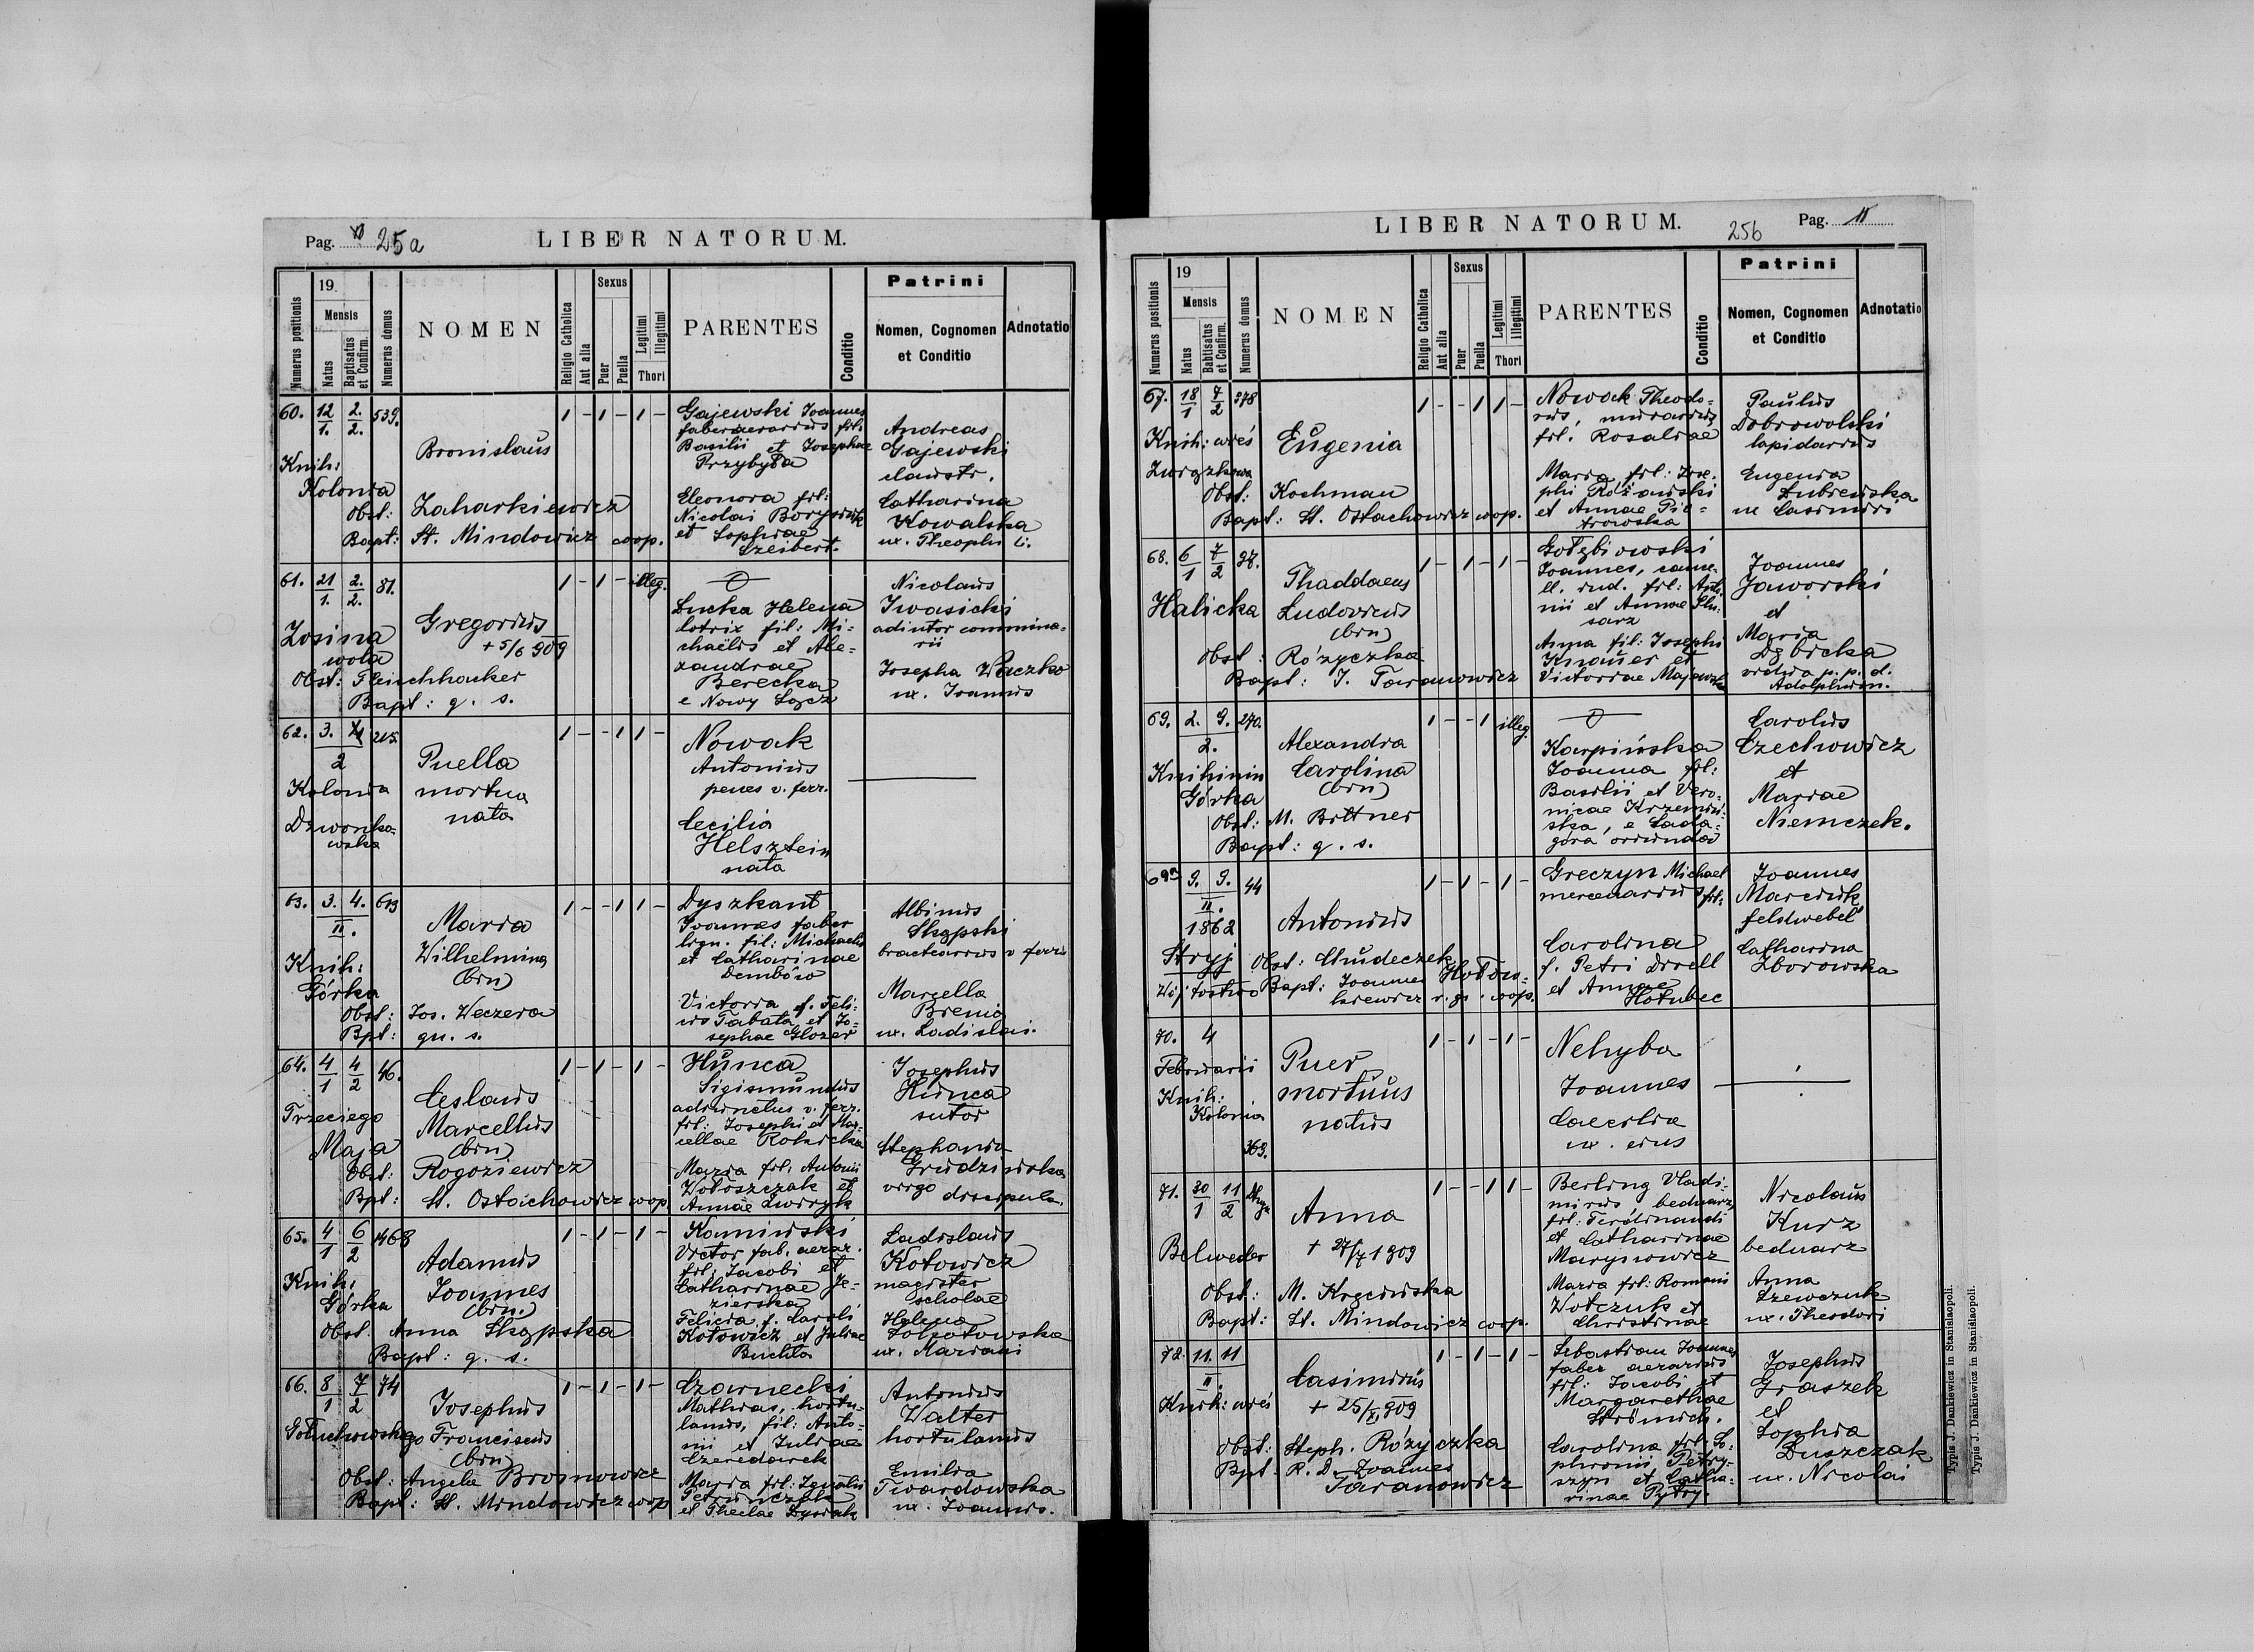 Pag. 25a
LIBER NATORUM.
Numerus positionis
19
Mensis
Natus
Baptisatus et Confirm.
Numerus domus
NOMEN
Religio Catholica
Aut alia
Sexus
Puer
Puella
Legitimi
Illegitimi
Thori
PARENTES
Conditio
Patrini
Nomen, Cognomen
et Conditio
Adnotatio
60. 12/1. 2./2. 539.
Knih:
Kolonia
Bronislaus
Obst: Zaharkiewicz
Bapt: St. Mindowicz coop.
1 - 1 - 1 -
Gajewski Joannes
faber aerarius fil:
Basilii et Josephae
Przybyła
Eleonora fil:
Nicolai
et Sophiae
Czeibert.
Andreas
Gajewski
Catharina
Kowalska
ux. Theophili.
61. 21/1. 2./2. 81.
Zosina
wola
Gregorius
+ 5/6 909
Obst: Fleischhacker
Bapt: q. s.
1 - 1 - illeg.
Lucka Helena
lotrix fil: Mi-
chaëlis et Ale-
xandrae
Berecka
e Nowy Sącz
Nicolaus
Iwasicki
Josepha
ux. Joannis
62. 3. 215.
2
Kolonia
Dzwonko-
wska
Puella
mortua
nata
1 - - 1 1 -
Nowak
Antonius
penes v. ferr.
Cecilia
Helsztein
nata
63. 3. 4. 613
II.
Knih:
Górka
Maria
Wilhelmina
(bin)
Obst: Jos. Weczera
Bpt: qu. s.
1 - - 1 1 -
Dyszkant
Joannes faber
lign. fil: Michaelis
et Catharinae
Dembów
Victoria f. Feli-
cis Tabata et Jo-
sephae Glozer
Albinus
Skąpski
bractearius v ferri
Marcella
Brenio
ux. Ladislai.
64. 4/1 4/2 46.
Trzeciego
Maja
Ceslaus
Marcellus
(bin)
Obst: Rogoziewicz
Bpt: St. Ostachowicz coop.
1 - 1 - 1 -
Hunca
Sigismundus
adiunctus v. ferr.
fil: Josephi et Mar-
cellae
Maria fil: Antonii
Wołoszczak et
Annae
Josephus
Hunca
sutor
Stephania
Grudzińska
virgo discipula.
65. 4/1 6/2 1468
Knih:
Górka
Adamus
Joannes
(bin.)
Obst. Anna Skąpska
Bapt: q. s.
1 - 1 - 1 -
Kamiński
Victor fab. aerar.
fil: Jacobi et
Catharinae Je-
zierska
Felicia f. Caroli
Kotowicz et Juliae
Buchta
Ladislaus
Kotowicz
magister
scholae
Helena
ux. Mariani
66. 8/1 7/2 74
Gołuchowskiego
Josephus
Franciscus
(bin)
Obst: Angela Brosnowicz
Bapt: St. Mindowicz coop
1 - 1 - 1 -
Czarnecki
Mathias, hortu-
lanus, fil: Anto-
nii et Juliae
Czeredarek
Maria fil: Ignatii
et Theclae
Antonius
Walter
hortulanus
Emilia
Twardowska
ux. Joannis.
LIBER NATORUM.
25b
Pag. 11
Numerus positionis
19
Mensis
Natus
Babtisatus et Confirm.
Numerus domus
NOMEN
Religio Catholica
Aut alia
Sexus
Puer
Puella
Legitimi
Illegitimi
Thori
PARENTES
Conditio
Patrini
Nomen, Cognomen
et Conditio
Adnotatio
67. 18/1 7/2 278
Knih: wieś
Związkowa
Eugenia
Obst: Kochman
Bapt: St. Ostachowicz coop.
1 - - 1 1 -
Nowak Theodo-
rus, murarius,
fil. Rosaliae
Maria, fil: Jose-
phi
et Annae Pio-
trowska
Paulus
Dobrowolski
lapidarius
Eugenia
ux Casimiri
68. 6/1 7/2 97.
Halicka
Thaddaeus
Ludovicus
(bin)
Obst: Różyczka
Bapt: J. Taranowicz
1 - 1 - 1 -
Gołębiowski
Joannes,
fil: Anto-
nii et Annae
Anna fil: Josephi
Knauer et
Victoriae
Joannes
Jaworski
et
Maria
Dębicka
vidua p. p. d.
69. 2. 9. 270.
2.
Knihinin
Górka
Alexandra
Carolina
(bin)
Obst: M. Bittner
Bapt: q. s.
1 - - 1 illeg.
Karpińska
Joanna fil:
Basilii et Vero-
nicae Krzemiń-
ska, e
góra oriunda
Carolus
Czechowicz
et
Mariae
Niemczek.
69a 9. 9. 44
II.
1862
Stryj
Antonius
Obst: Chudeczek
Bapt: Joannes Hołow-
kiewicz r. gr. coop.
1 - 1 - 1 -
Greczyn Michael
mercenarius fil:
Carolina
f. Petri Drell
et Annae
Hołubec
Joannes
Marciuk
feldwebel
Catharina
Zborowska
70. 4
Februarii
Knih:
Kolonia
369.
Puer
mortuus
natus
1 - 1 - 1 -
Nehyba
Joannes
Caecilia
ux. eius
71. 30/1 11/2
Belweder
Anna
Obst: M. Kręcińska
Bapt: St. Mindowicz coop.
1 - - 1 1 -
Berling Vladi-
mirus beduarz,
fil: Ferdinandi
et Catharinae
Marynowicz
Maria fil: Romani
Wołczuk et
Christinae
Nicolaus
Kurz
beduarz
Anna
Szewczuk
ux. Theodori
72. 11. 11
II.
Knih: wieś
Casimirus
Obst: Steph. Różyczka
Bpt. R. D. Joannes
Taranowicz
1 - 1 - 1 -
Sebastian Joannes
faber aerarius
fil: Jacobi et
Margarethae
Carolina fil. So-
phronii Petry-
szyn et Catha-
rinae
Josephus
Graszek
et
Sophia
Duszczak
ux. Nicolai
Typis J. Dankiewicz in Stanislaopoli.
Typis J. Dankiewicz in Stanislaopoli.